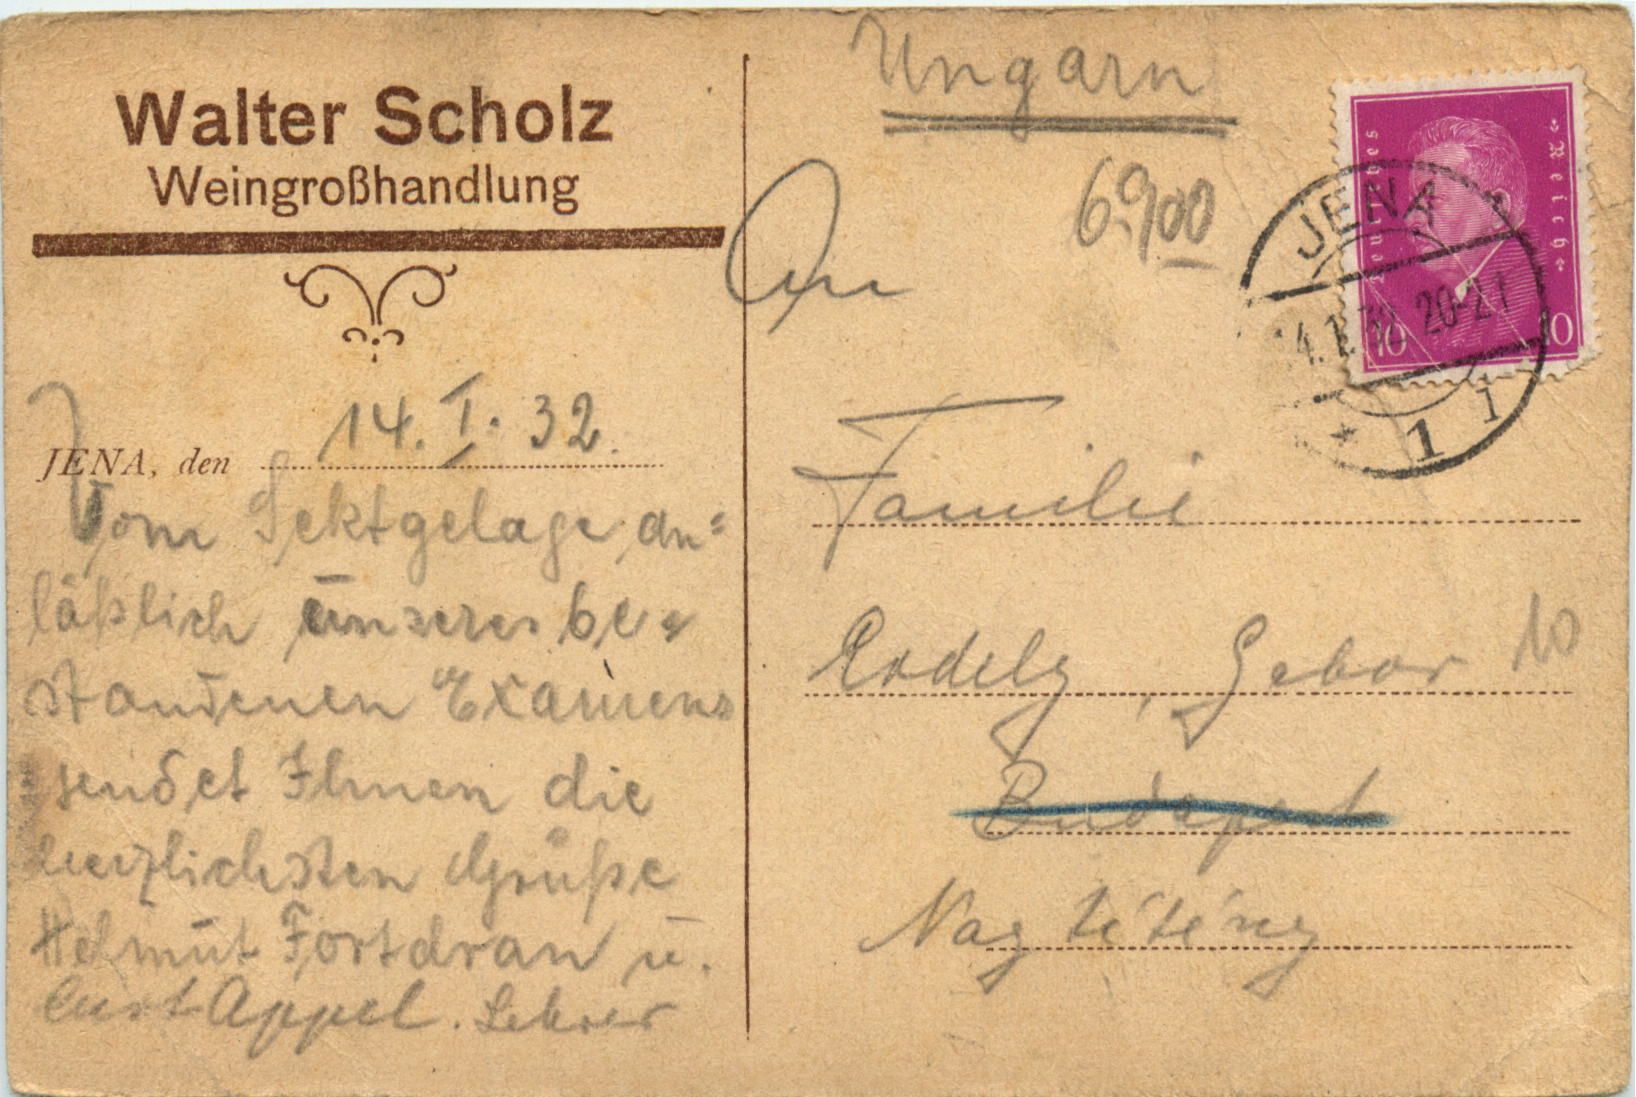 Walter Scholz
Weingroßhandlung
JENA, den 14. I. 32.
Vom Sektgelage an=
läßlich unseres be=
standenen Examens
sendet Ihnen die
herzlichsten Grüße
Helmut Fortdran u.
Curt Appel. Lehrer
Ungarn
6900
An
Familie
Erdely, Gabor 10
Budapest
Nagytétény
Deutsches Reich
10 10
JENA
14.1.32 20-21
* 1 i